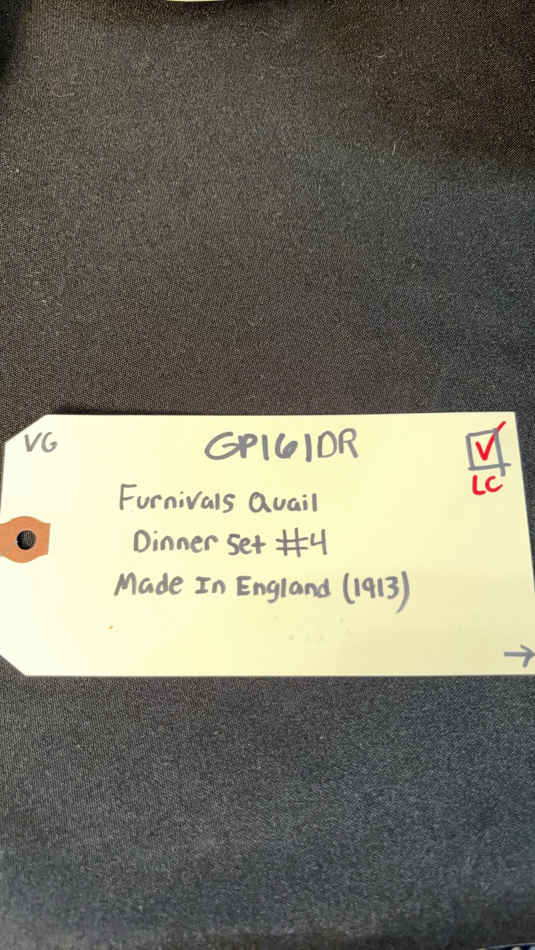 VG
GP161DR
LC
Furnivals Quail
Dinner Set #4
Made In England (1913)